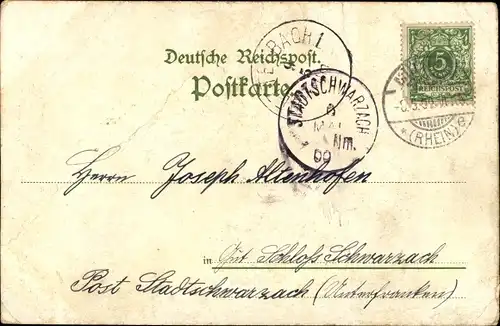 Deutsche Reichspost.
Postkarte.
5
REICHSPOST
STADTSCHWARZACH
MAI
Nm.
99
(RHEIN)
Herrn Joseph Altenhofen
in Gut Schloß Schwarzach
Post Stadtschwarzach (Unterfranken)